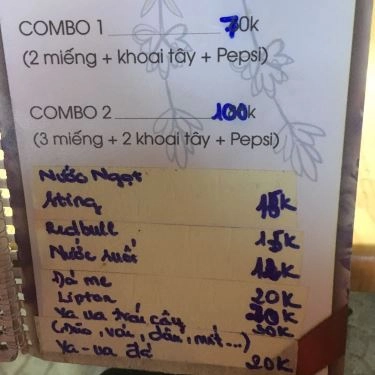 COMBO 1 70k
(2 miếng + khoai tây + Pepsi)
COMBO 2 100k
(3 miếng + 2 khoai tây + Pepsi)
Nước Ngọt
Sting 15K
Redbull 15K
Nước suối 12K
Đá me 20K
Lipton 20K
Ya ua trái cây 30K
(Đào, vải, dâu, mít...)
Ya-ua đá 20K